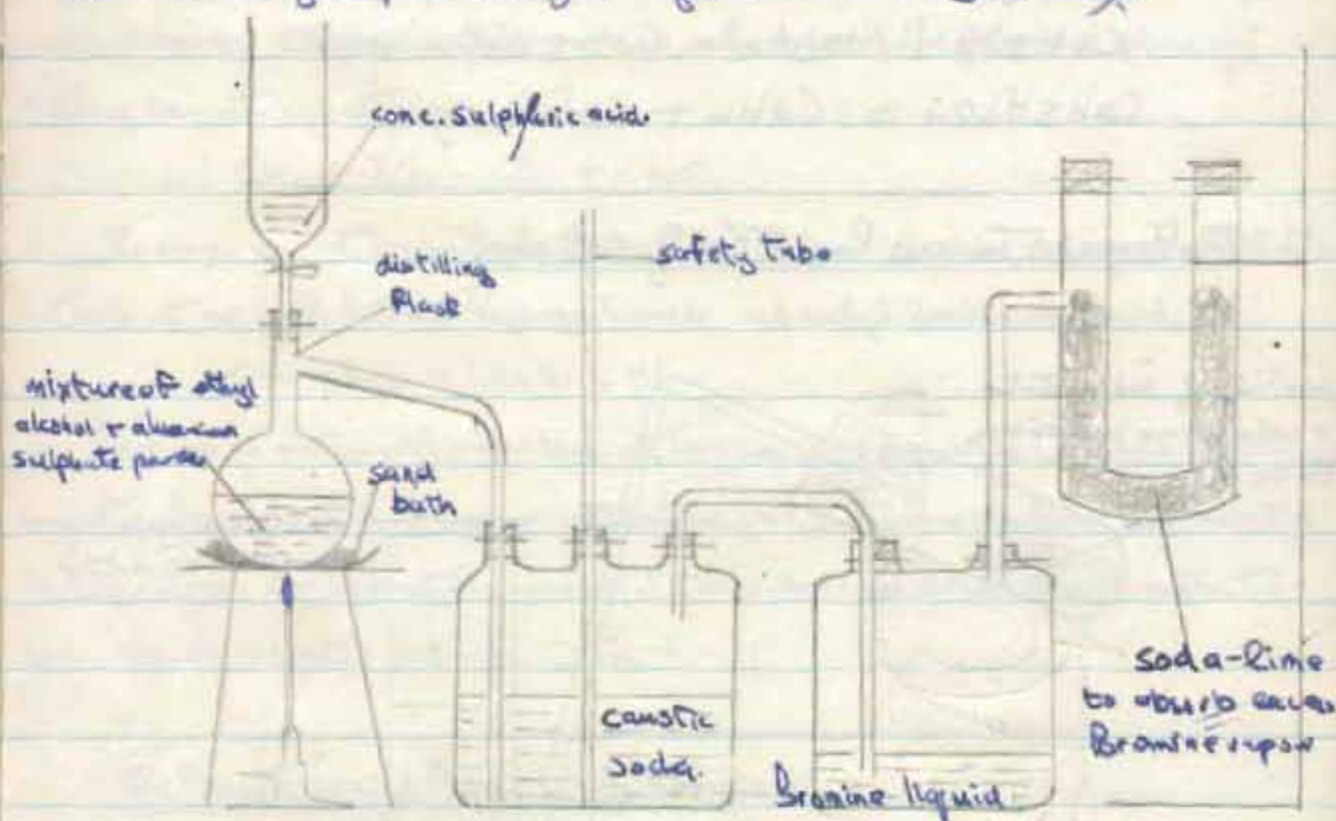 conc. sulphuric acid.
distilling
flask
safety tube
mixture of ethyl
alcohol + aluminium
sulphate powder
sand
bath
caustic
soda.
Bromine liquid
soda-lime
to absorb excess
Bromine vapour